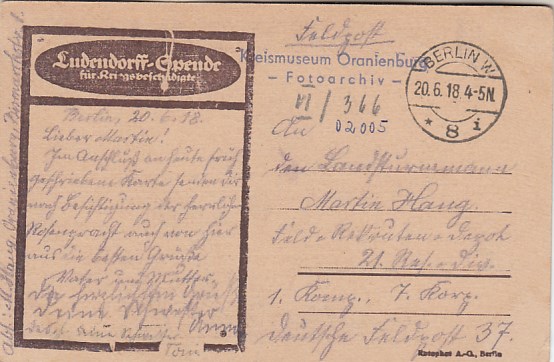 Ludendorff-Spende
für Kriegsbeschädigte
Berlin, 20.6.18.
Lieber Martin!
Im Anschluß an heute früh
geschriebene Karte senden Dir
nach Besichtigung der herrlichen
Rosenpracht auch von hier
aus die besten Grüße
Vater und Mutter.
Die herzlichsten Grüße
Deine Schwester
Anna
Feldpost
Kreismuseum Oranienburg
- Fotoarchiv -
VI / 366
02005
BERLIN W
20.6.18 4-5N.
* 8 i
An
den Landsturmmann
Martin Haug.
Feld-Rekruten-Depot
21. Res.-Div.
1. Komp., 7. Korp.
Deutsche Feldpost 37.
Rotophot A.-G., Berlin